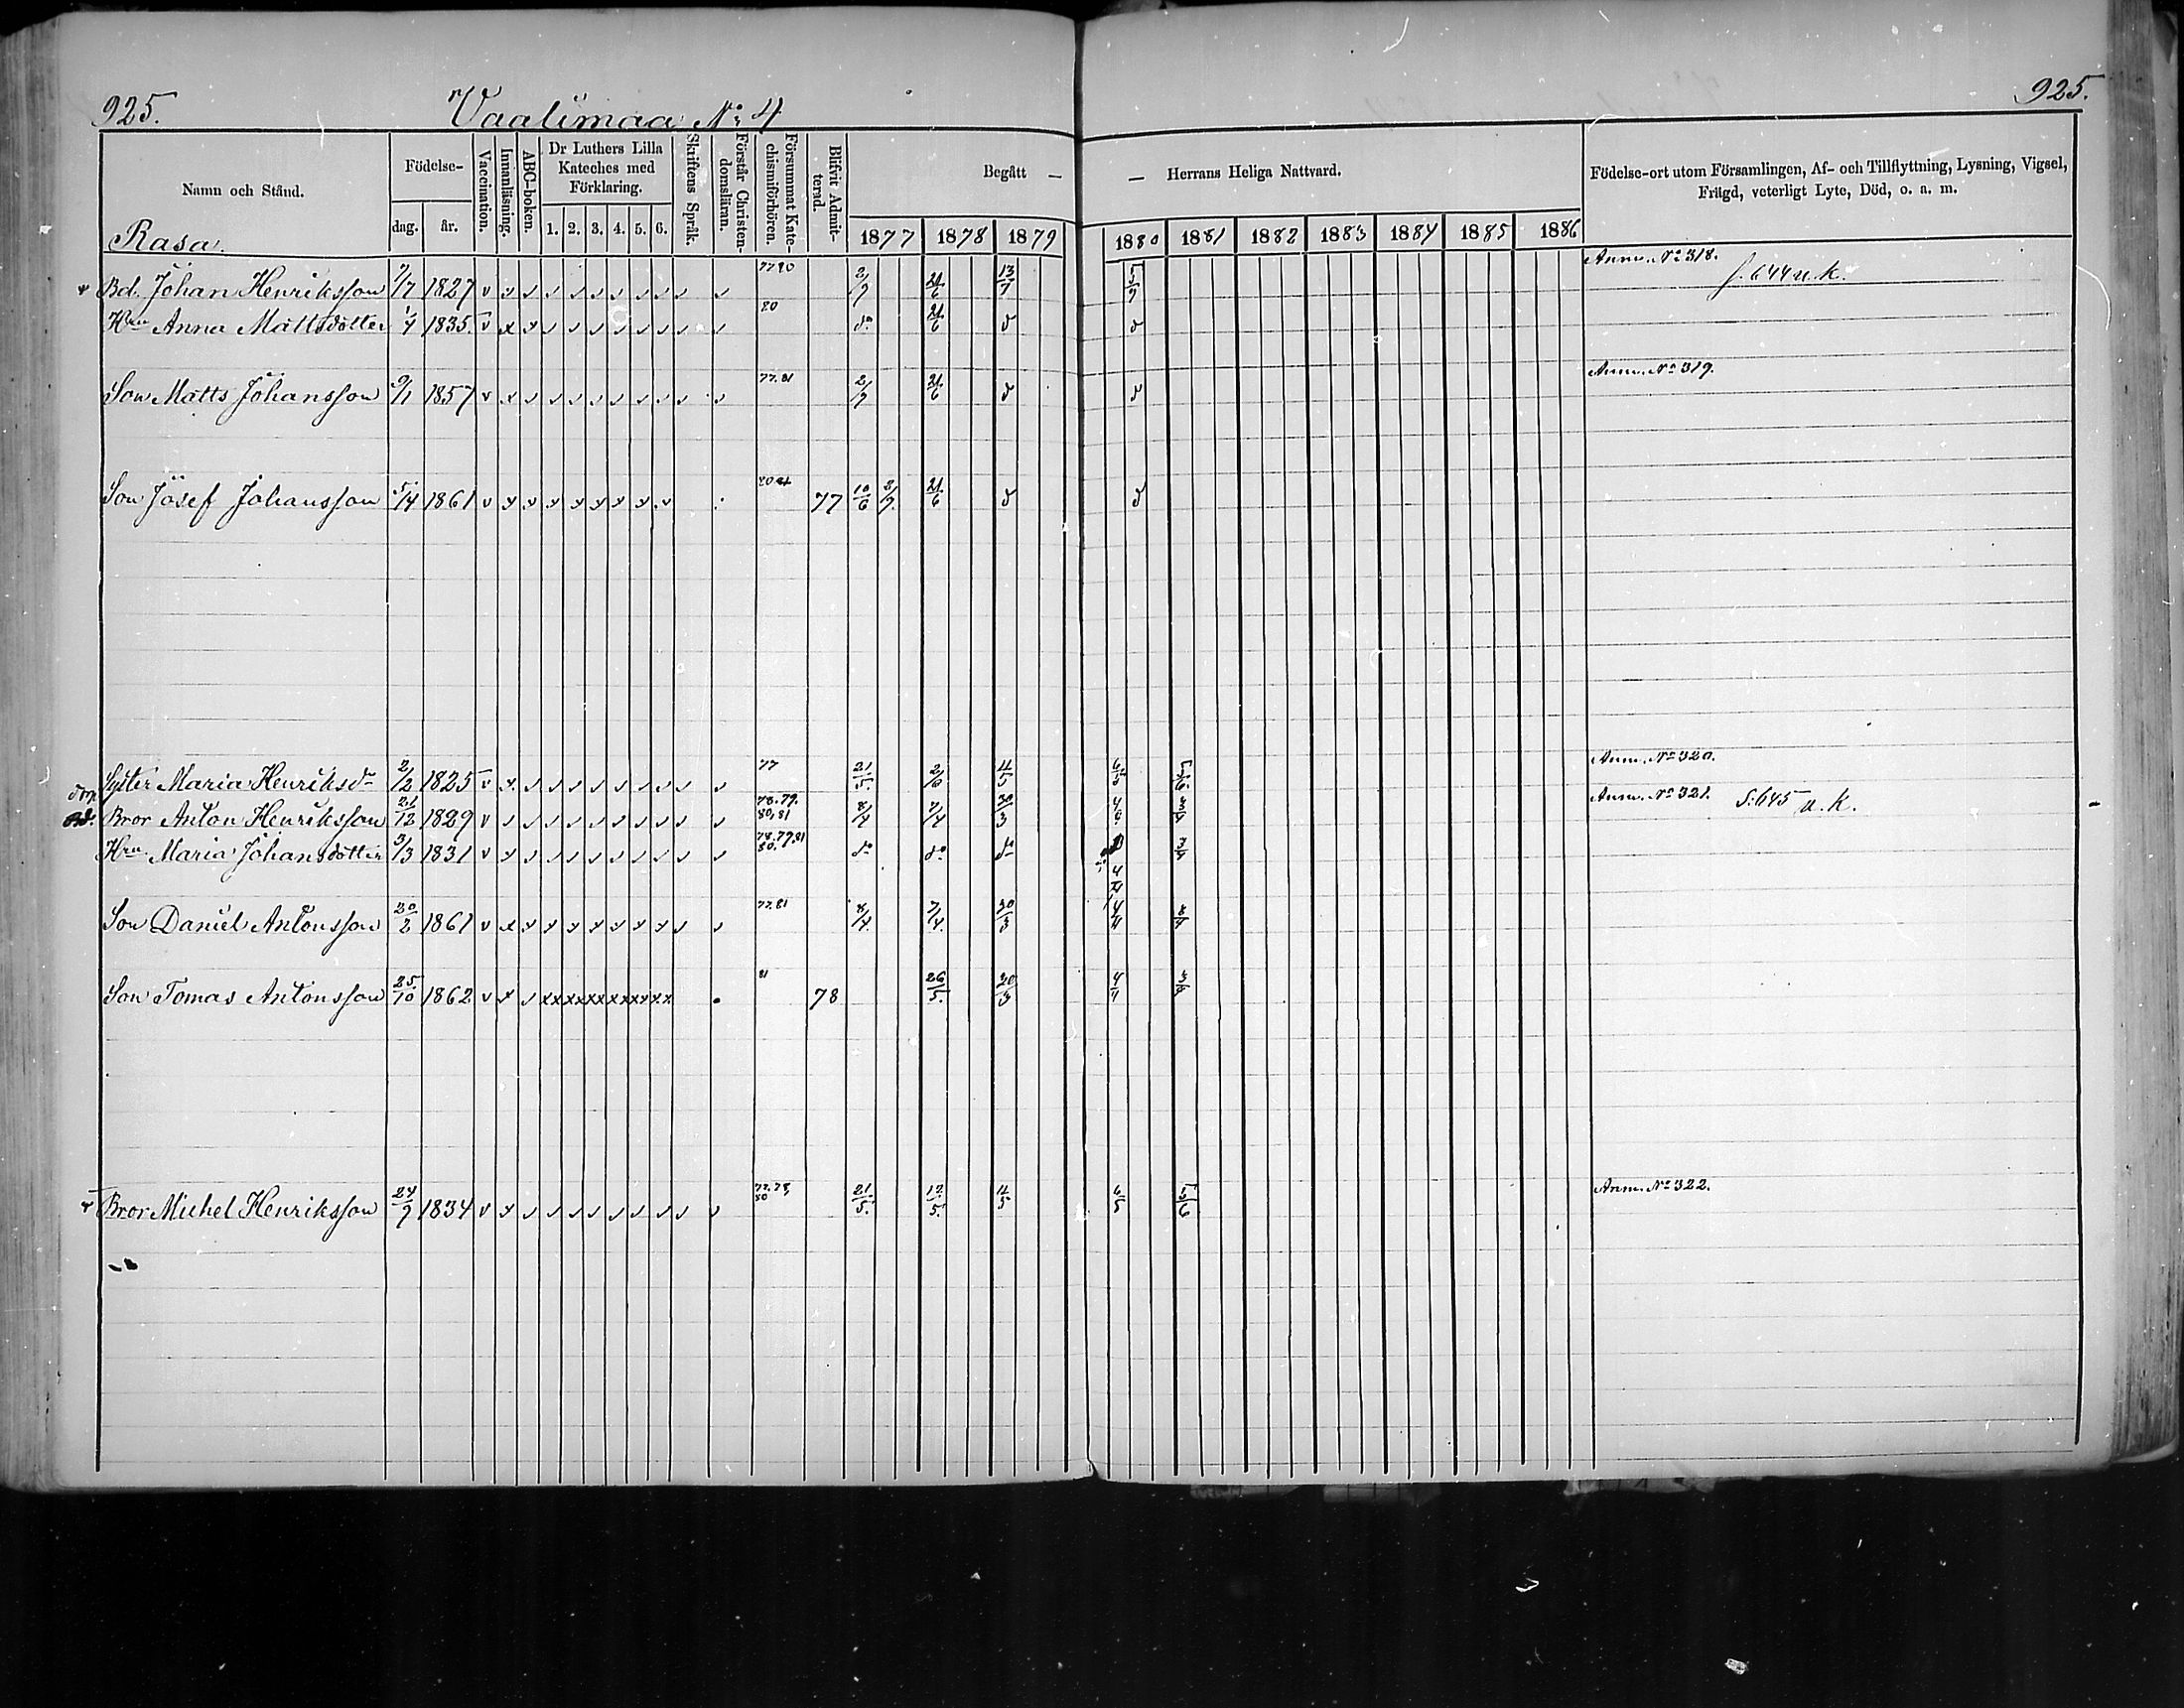 925.
Vaalimaa No 4
925.
Namn och Stånd.
Födelse-
dag.
år.
Vaccination.
Innanläsning.
ABC-boken.
Dr Luthers Lilla
Kateches med
Förklaring.
1. 2. 3. 4. 5. 6.
Skriftens Språk.
Förstår Christen-
domsläran.
Försummat Kate-
chismiförhören.
Blifvit Admit-
terad.
Begått —
— Herrans Heliga Nattvard.
Födelse-ort utom Församlingen, Af- och Tillflyttning, Lysning, Vigsel,
Frägd, veterligt Lyte, Död, o. a. m.
1877 1878 1879 1880 1881 1882 1883 1884 1885 1886
Rasa.
Bd. Johan Henriksson 7/7 1827 2/9 21/6 13/7 5/9 Anm. No 318. s. 644 u. k.
Hru Anna Mattsdotter 1835. 80 do 21/6
Son Matts Johansson 9/1 1857 77.81 2/9 21/6 Anm. No 319.
Son Josef Johansson 5/14 1861 77 10/6 2/9 21/6
Syster Maria Henriksdr 2/12 1825 77 21/5. 11/5 6/5 Anm. No 320.
Bror Anton Henriksson 21/12 1829 78.79. 80,81 8/4 7/4 30/3 Anm. No 321. S: 645 u. k.
Hru Maria Johansdotter 3/3 1831 78.79.81 80. do do do
4/4
Son Daniel Antonsson 20/2 1861 77.81 8/4 7/4. 30/3 4/4
Son Tomas Antonsson 25/10 1862 81 78 26/5. 4/4
Bror Michel Henriksson 24/9 1834 80 21/5. 12/5. 11/5 6/5 5/6 Anm. No 322.